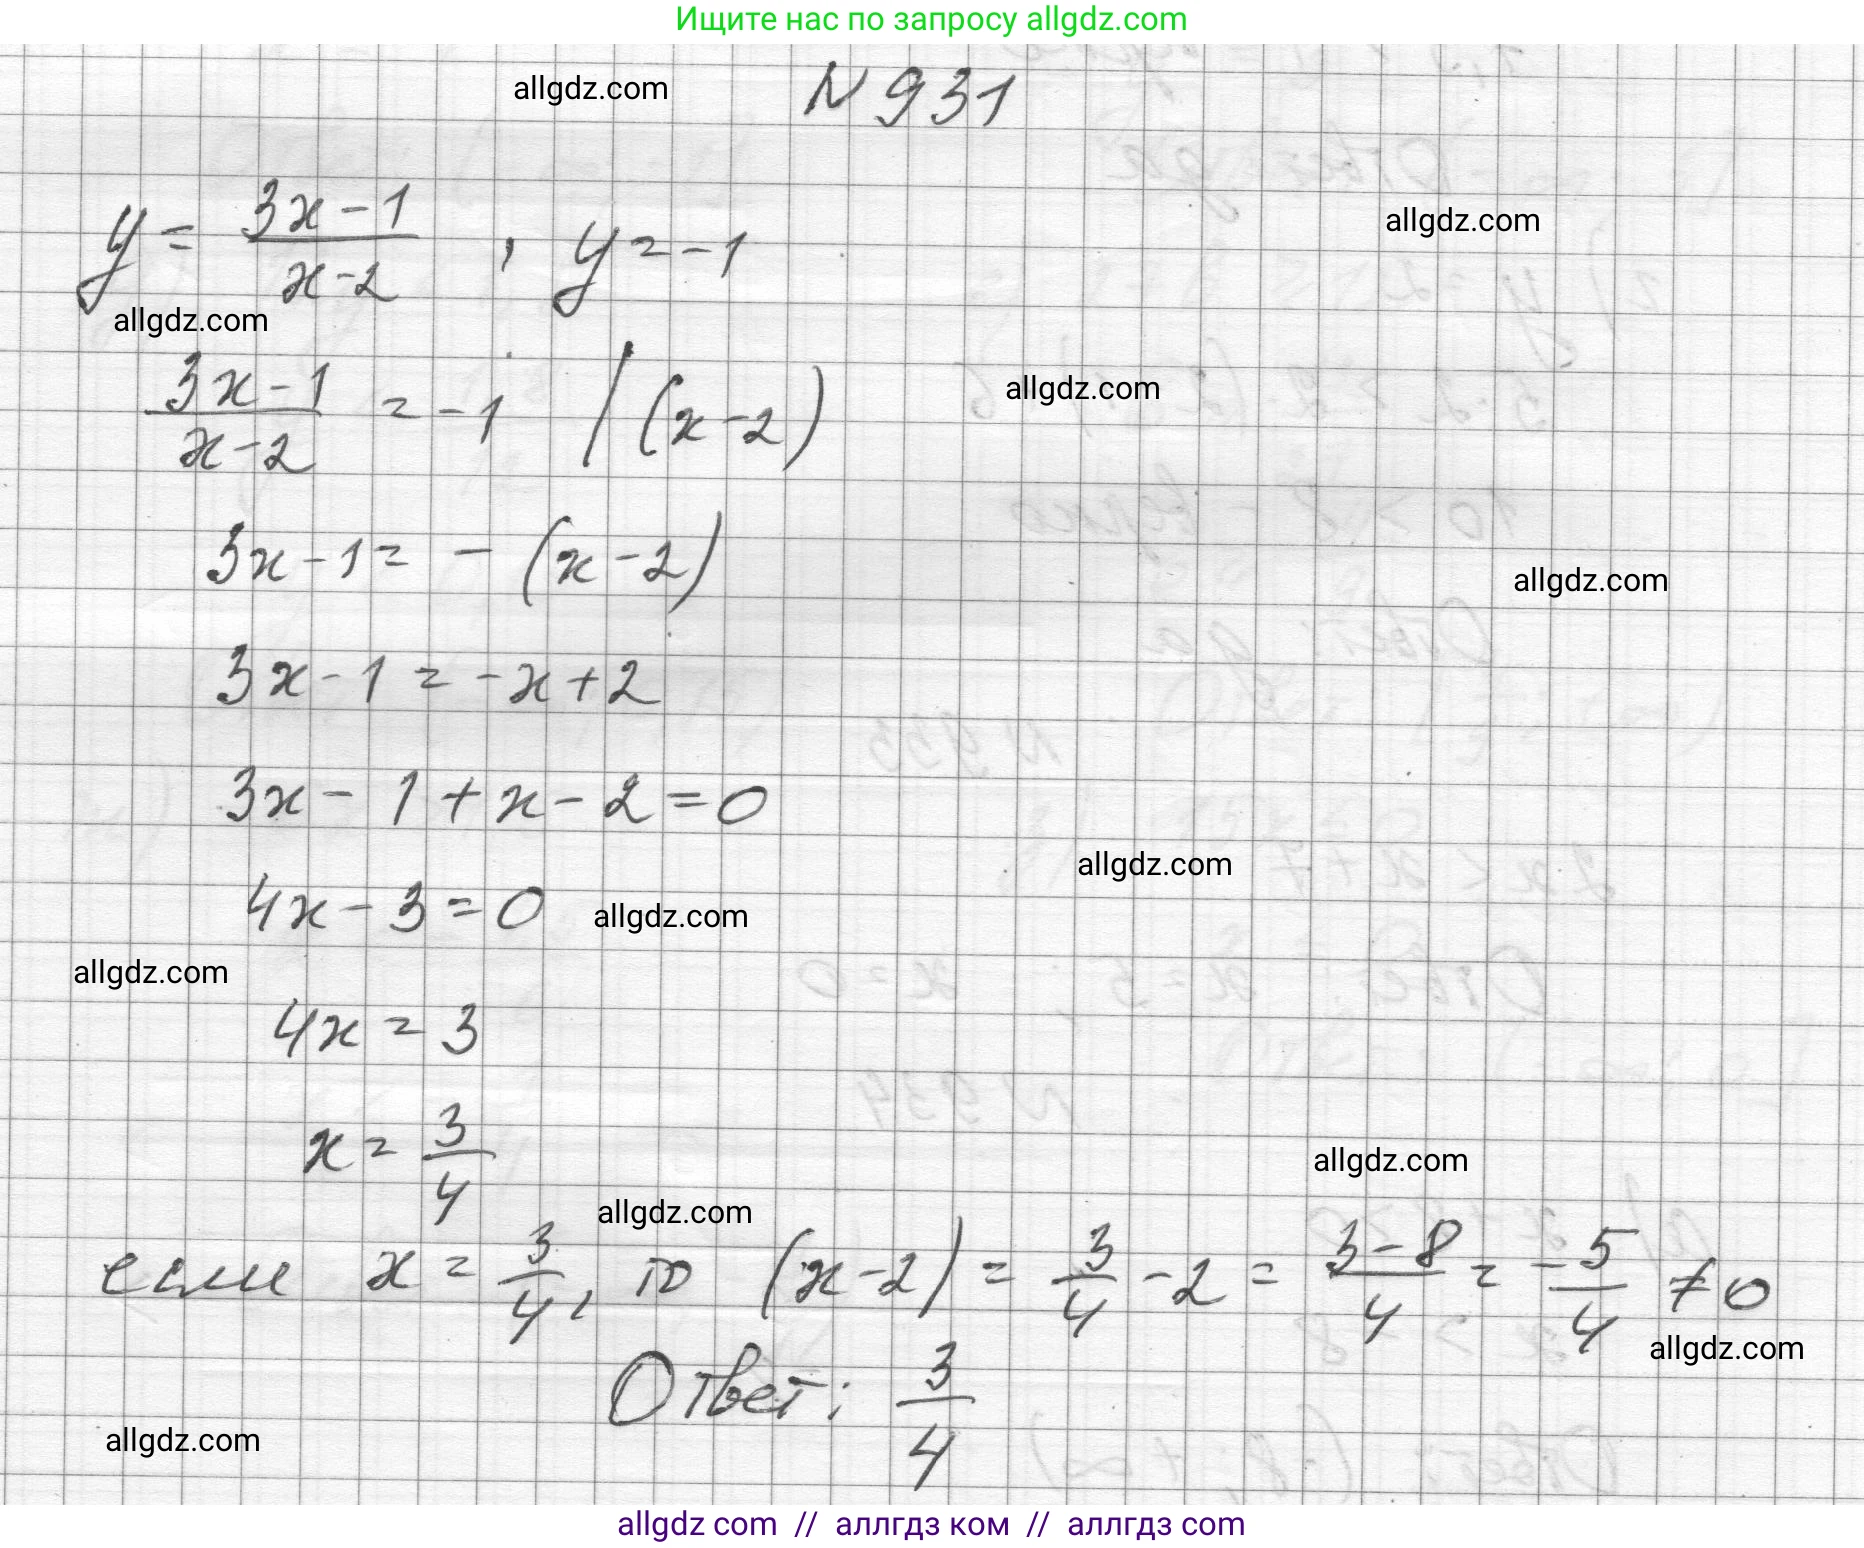 Ищите нас по запросу allgdz.com
allgdz.com
N 931
y = (3x - 1)/(x - 2) , y = -1
allgdz.com
allgdz.com
(3x - 1)/(x - 2) = -1 | (x - 2)
allgdz.com
3x - 1 = - (x - 2)
allgdz.com
3x - 1 = -x + 2
3x - 1 + x - 2 = 0
allgdz.com
4x - 3 = 0
allgdz.com
allgdz.com
4x = 3
x = 3/4
allgdz.com
allgdz.com
если x = 3/4, то (x - 2) = 3/4 - 2 = (3 - 8)/4 = -5/4 ≠ 0
allgdz.com
Ответ: 3/4
allgdz.com
allgdz com // аллгдз ком // аллгдз com